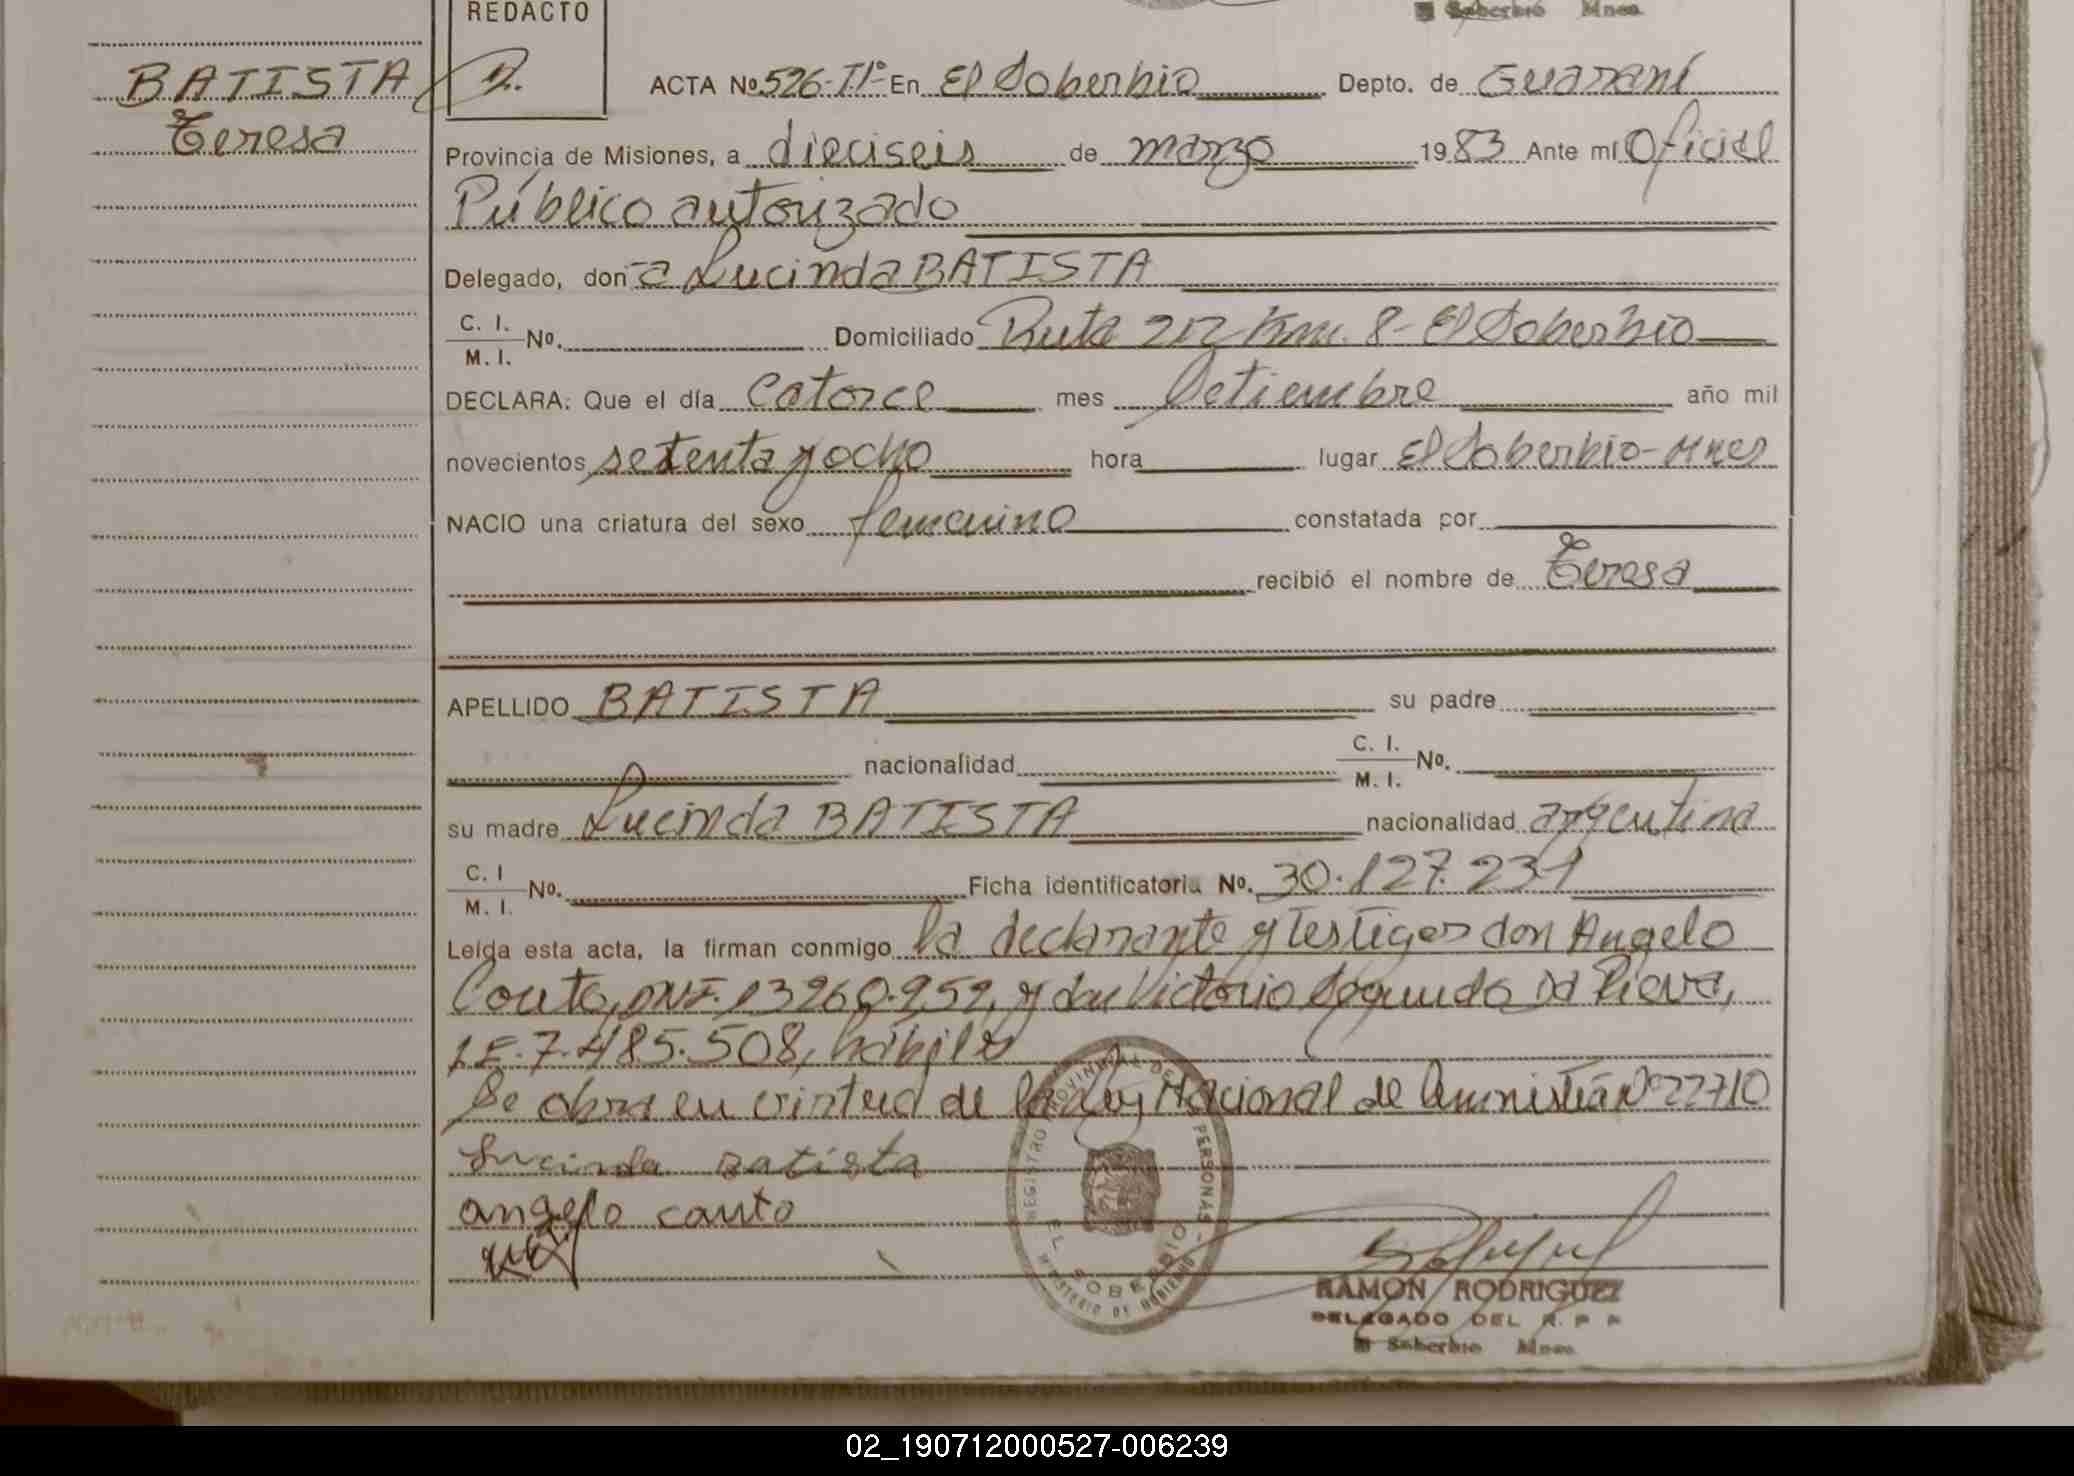 REDACTO
El Soberbio Mnes.
BATISTA
Teresa
ACTA Nº 526-TIº- En El Soberbio Depto. de Guaraní
Provincia de Misiones, a dieciseis de marzo 1983 Ante mí Oficial
Público autorizado
Delegado, don-a Lucinda BATISTA
C. I. M. I. Nº. Domiciliado Ruta 212 Km. 8- El Soberbio
DECLARA: Que el día catorce mes Setiembre año mil
novecientos setenta y ocho hora lugar El Soberbio-Mnes
NACIO una criatura del sexo femenino constatada por
recibió el nombre de Teresa
APELLIDO BATISTA su padre
nacionalidad C. I. M. I. Nº.
su madre Lucinda BATISTA nacionalidad argentina
C. I M. I. Nº. Ficha identificatoria Nº. 30.127.231
Leída esta acta, la firman conmigo la declarante y testigos don Angelo
Couto, DNI. 13260.959, y don Victorio Segundo Da Pieva,
LE. 7.485.508, hábiles
Se obra en virtud de la Ley Nacional de Amnistía Nº 22710
Lucinda Batista
angelo couto
REGISTRO PROVINCIAL DE PERSONAS - EL SOBERBIO
MINISTERIO DE GOBIERNO
RAMON RODRIGUEZ
DELEGADO DEL R. P P
El Soberbio Mnes.
02_190712000527-006239